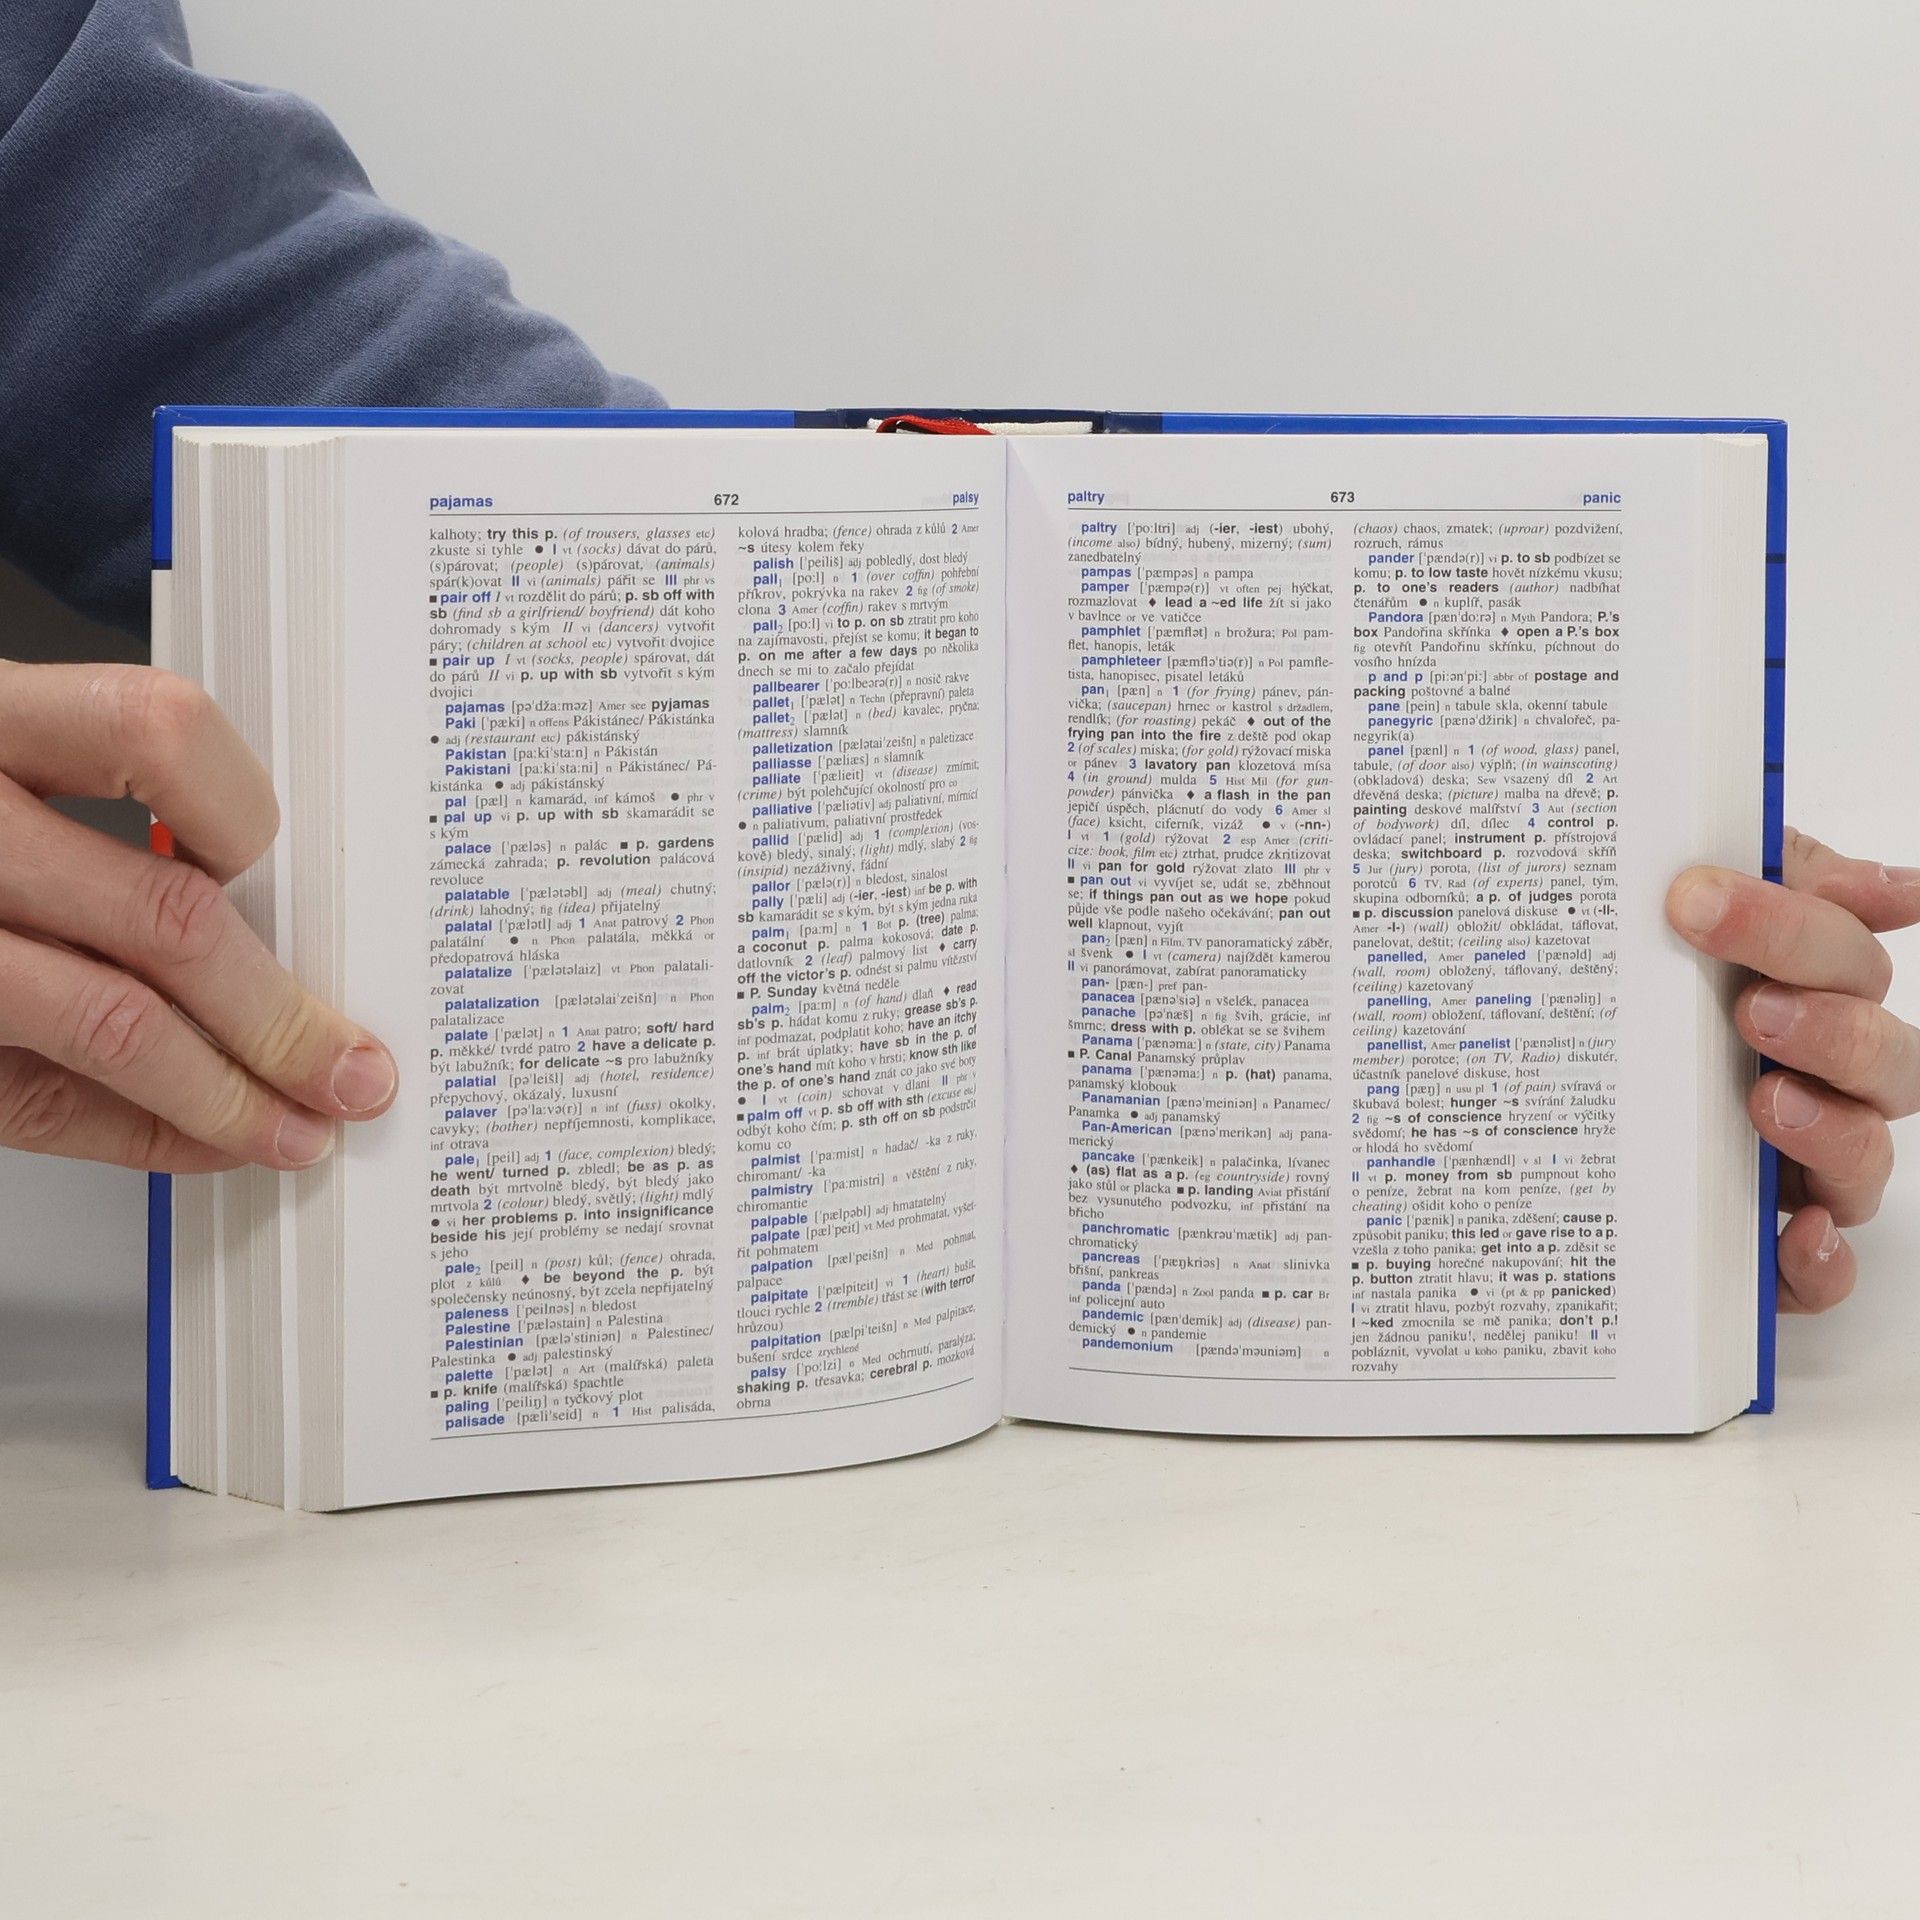 pajamas 672 palsy
kalhoty; try this p. (of trousers, glasses etc)
zkuste si tyhle ● I vt (socks) dávat do párů,
(s)párovat; (people) (s)párovat, (animals)
spár(k)ovat II vi (animals) pářit se III phr vs
■ pair off I vt rozdělit do párů; p. sb off with
sb (find sb a girlfriend/ boyfriend) dát koho
dohromady s kým II vi (dancers) vytvořit
páry; (children at school etc) vytvořit dvojice
■ pair up I vt (socks, people) spárovat, dát
do párů II vi p. up with sb vytvořit s kým
dvojici
pajamas [pə'dža:məz] Amer see pyjamas
Paki ['pæki] n offens Pákistánec/ Pákistánka
● adj (restaurant etc) pákistánský
Pakistan [pa:ki'sta:n] n Pákistán
Pakistani [pa:ki'sta:ni] n Pákistánec/ Pá-
kistánka ● adj pákistánský
pal [pæl] n kamarád, inf kámoš ● phr v
■ pal up vi p. up with sb skamarádit se
s kým
palace ['pæləs] n palác ■ p. gardens
zámecká zahrada; p. revolution palácová
revoluce
palatable ['pælətəbl] adj (meal) chutný;
(drink) lahodný; fig (idea) přijatelný
palatal ['pælətl] adj 1 Anat patrový 2 Phon
palatální ● n Phon palatála, měkká or
předopatrová hláska
palatalize ['pælətəlaiz] vt Phon palatali-
zovat
palatalization [pælətəlai'zeišn] n Phon
palatalizace
palate ['pælət] n 1 Anat patro; soft/ hard
p. měkké/ tvrdé patro 2 have a delicate p.
být labužník; for delicate ~s pro labužníky
palatial [pə'leišl] adj (hotel, residence)
přepychový, okázalý, luxusní
palaver [pə'la:və(r)] n inf (fuss) okolky,
cavyky; (bother) nepříjemnosti, komplikace,
inf otrava
pale₁ [peil] adj 1 (face, complexion) bledý;
he went/ turned p. zbledl; be as p. as
death být mrtvolně bledý, být bledý jako
mrtvola 2 (colour) bledý, světlý; (light) mdlý
● vi her problems p. into insignificance
beside his její problémy se nedají srovnat
s jeho
pale₂ [peil] n (post) kůl; (fence) ohrada,
plot z kůlů ♦ be beyond the p. být
společensky neúnosný, být zcela nepřijatelný
paleness ['peilnəs] n bledost
Palestine ['pæləstain] n Palestina
Palestinian [pælə'stiniən] n Palestinec/
Palestinka ● adj palestinský
palette ['pælət] n Art (malířská) paleta
■ p. knife (malířská) špachtle
paling ['peiliŋ] n tyčkový plot
palisade [pæli'seid] n 1 Hist palisáda,
kolová hradba; (fence) ohrada z kůlů 2 Amer
~s útesy kolem řeky
palish ['peiliš] adj pobledlý, dost bledý
pall₁ [po:l] n 1 (over coffin) pohřební
příkrov, pokrývka na rakev 2 fig (of smoke)
clona 3 Amer (coffin) rakev s mrtvým
pall₂ [po:l] vi to p. on sb ztratit pro koho
na zajímavosti, přejíst se komu; it began to
p. on me after a few days po několika
dnech se mi to začalo přejídat
pallbearer ['po:lbeərə(r)] n nosič rakve
pallet₁ ['pælət] n Techn (přepravní) paleta
pallet₂ ['pælət] n (bed) kavalec, pryčna;
(mattress) slamník
palletization [pælətai'zeišn] n paletizace
palliasse ['pæliæs] n slamník
palliate ['pælieit] vt (disease) zmírnit;
(crime) být polehčující okolností pro co
palliative ['pæliətiv] adj paliativní, mírnící
● n paliativum, paliativní prostředek
pallid ['pælid] adj 1 (complexion) (vos-
kově) bledý, sinalý; (light) mdlý, slabý 2 fig
(insipid) nezáživný, fádní
pallor ['pælə(r)] n bledost, sinalost
pally ['pæli] adj (-ier, -iest) inf be p. with
sb kamarádit se s kým, být s kým jedna ruka
palm₁ [pa:m] n 1 Bot p. (tree) palma;
a coconut p. palma kokosová; date p.
datlovník 2 (leaf) palmový list ♦ carry
off the victor's p. odnést si palmu vítězství
■ P. Sunday květná neděle
palm₂ [pa:m] n (of hand) dlaň ♦ read
sb's p. hádat komu z ruky; grease sb's p.
inf podmazat, podplatit koho; have an itchy
p. inf brát úplatky; have sb in the p. of
one's hand mít koho v hrsti; know sth like
the p. of one's hand znát co jako své boty
● I vt (coin) schovat v dlani II phr v
■ palm off vt p. sb off with sth (excuse etc)
odbýt koho čím; p. sth off on sb podstrčit
komu co
palmist ['pa:mist] n hadač/ -ka z ruky,
chiromant/ -ka
palmistry ['pa:mistri] n věštění z ruky,
chiromantie
palpable ['pælpəbl] adj hmatatelný
palpate [pæl'peit] vt Med prohmatat, vyšet-
řit pohmatem
palpation [pæl'peišn] n Med pohmat,
palpace
palpitate ['pælpiteit] vi 1 (heart) bušit,
tlouci rychle 2 (tremble) třást se (with terror
hrůzou)
palpitation [pælpi'teišn] n Med palpitace,
bušení srdce zrychlené
palsy ['po:lzi] n Med ochrnutí, paralýza;
shaking p. třesavka; cerebral p. mozková
obrna
paltry 673 panic
paltry ['po:ltri] adj (-ier, -iest) ubohý,
(income also) bídný, hubený, mizerný; (sum)
zanedbatelný
pampas ['pæmpəs] n pampa
pamper ['pæmpə(r)] vt often pej hýčkat,
rozmazlovat ♦ lead a ~ed life žít si jako
v bavlnce or ve vatičce
pamphlet ['pæmflət] n brožura; Pol pam-
flet, hanopis, leták
pamphleteer [pæmflə'tiə(r)] n Pol pamfle-
tista, hanopisec, pisatel letáků
pan₁ [pæn] n 1 (for frying) pánev, pán-
vička; (saucepan) hrnec or kastrol s držadlem,
rendlík; (for roasting) pekáč ♦ out of the
frying pan into the fire z deště pod okap
2 (of scales) miska; (for gold) rýžovací miska
or pánev 3 lavatory pan klozetová mísa
4 (in ground) mulda 5 Hist Mil (for gun-
powder) pánvička ♦ a flash in the pan
jepičí úspěch, plácnutí do vody 6 Amer sl
(face) ksicht, ciferník, vizáž ● v (-nn-)
I vt 1 (gold) rýžovat 2 esp Amer (criti-
cize: book, film etc) ztrhat, prudce zkritizovat
II vi pan for gold rýžovat zlato III phr v
■ pan out vi vyvíjet se, udát se, zběhnout
se; if things pan out as we hope pokud
půjde vše podle našeho očekávání; pan out
well klapnout, vyjít
pan₂ [pæn] n Film, TV panoramatický záběr,
sl švenk ● I vt (camera) najíždět kamerou
II vi panorámovat, zabírat panoramaticky
pan- [pæn-] pref pan-
panacea [pænə'siə] n všelék, panacea
panache [pə'næš] n fig švih, grácie, inf
šmrnc; dress with p. oblékat se se švihem
Panama ['pænəma:] n (state, city) Panama
■ P. Canal Panamský průplav
panama ['pænəma:] n p. (hat) panama,
panamský klobouk
Panamanian [pænə'meiniən] n Panamec/
Panamka ● adj panamský
Pan-American [pænə'merikən] adj pana-
merický
pancake ['pænkeik] n palačinka, lívanec
♦ (as) flat as a p. (eg countryside) rovný
jako stůl or placka ■ p. landing Aviat přistání
bez vysunutého podvozku, inf přistání na
břicho
panchromatic [pænkrəu'mætik] adj pan-
chromatický
pancreas ['pæŋkriəs] n Anat slinivka
břišní, pankreas
panda ['pændə] n Zool panda ■ p. car Br
inf policejní auto
pandemic [pæn'demik] adj (disease) pan-
demický ● n pandemie
pandemonium [pændə'məuniəm] n
(chaos) chaos, zmatek; (uproar) pozdvižení,
rozruch, rámus
pander ['pændə(r)] vi p. to sb podbízet se
komu; p. to low taste hovět nízkému vkusu;
p. to one's readers (author) nadbíhat
čtenářům ● n kuplíř, pasák
Pandora [pæn'do:rə] n Myth Pandora; P.'s
box Pandořina skřínka ♦ open a P.'s box
fig otevřít Pandořinu skřínku, píchnout do
vosího hnízda
p and p [pi:ən'pi:] abbr of postage and
packing poštovné a balné
pane [pein] n tabule skla, okenní tabule
panegyric [pænə'džirik] n chvalořeč, pa-
negyrik(a)
panel [pænl] n 1 (of wood, glass) panel,
tabule, (of door also) výplň; (in wainscoting)
(obkladová) deska; Sew vsazený díl 2 Art
dřevěná deska; (picture) malba na dřevě; p.
painting deskové malířství 3 Aut (section
of bodywork) díl, dílec 4 control p.
ovládací panel; instrument p. přístrojová
deska; switchboard p. rozvodová skříň
5 Jur (jury) porota, (list of jurors) seznam
porotců 6 TV, Rad (of experts) panel, tým,
skupina odborníků; a p. of judges porota
■ p. discussion panelová diskuse ● vt (-ll-,
Amer -l-) (wall) obložit/ obkládat, táflovat,
panelovat, deštit; (ceiling also) kazetovat
panelled, Amer paneled ['pænəld] adj
(wall, room) obložený, táflovaný, deštěný;
(ceiling) kazetovaný
panelling, Amer paneling ['pænəliŋ] n
(wall, room) obložení, táflovaní, deštění; (of
ceiling) kazetování
panellist, Amer panelist ['pænəlist] n (jury
member) porotce; (on TV, Radio) diskutér,
účastník panelové diskuse, host
pang [pæŋ] n usu pl 1 (of pain) svíravá or
škubavá bolest; hunger ~s svírání žaludku
2 fig ~s of conscience hryzení or výčitky
svědomí; he has ~s of conscience hryže
or hlodá ho svědomí
panhandle ['pænhændl] v sl I vi žebrat
II vt p. money from sb pumpnout koho
o peníze, žebrat na kom peníze, (get by
cheating) ošidit koho o peníze
panic ['pænik] n panika, zděšení; cause p.
způsobit paniku; this led or gave rise to a p.
vzešla z toho panika; get into a p. zděsit se
■ p. buying horečné nakupování; hit the
p. button ztratit hlavu; it was p. stations
inf nastala panika ● vi (pt & pp panicked)
I vi ztratit hlavu, pozbýt rozvahy, zpanikařit;
I ~ked zmocnila se mě panika; don't p.!
jen žádnou paniku!, nedělej paniku! II vt
pobláznit, vyvolat u koho paniku, zbavit koho
rozvahy